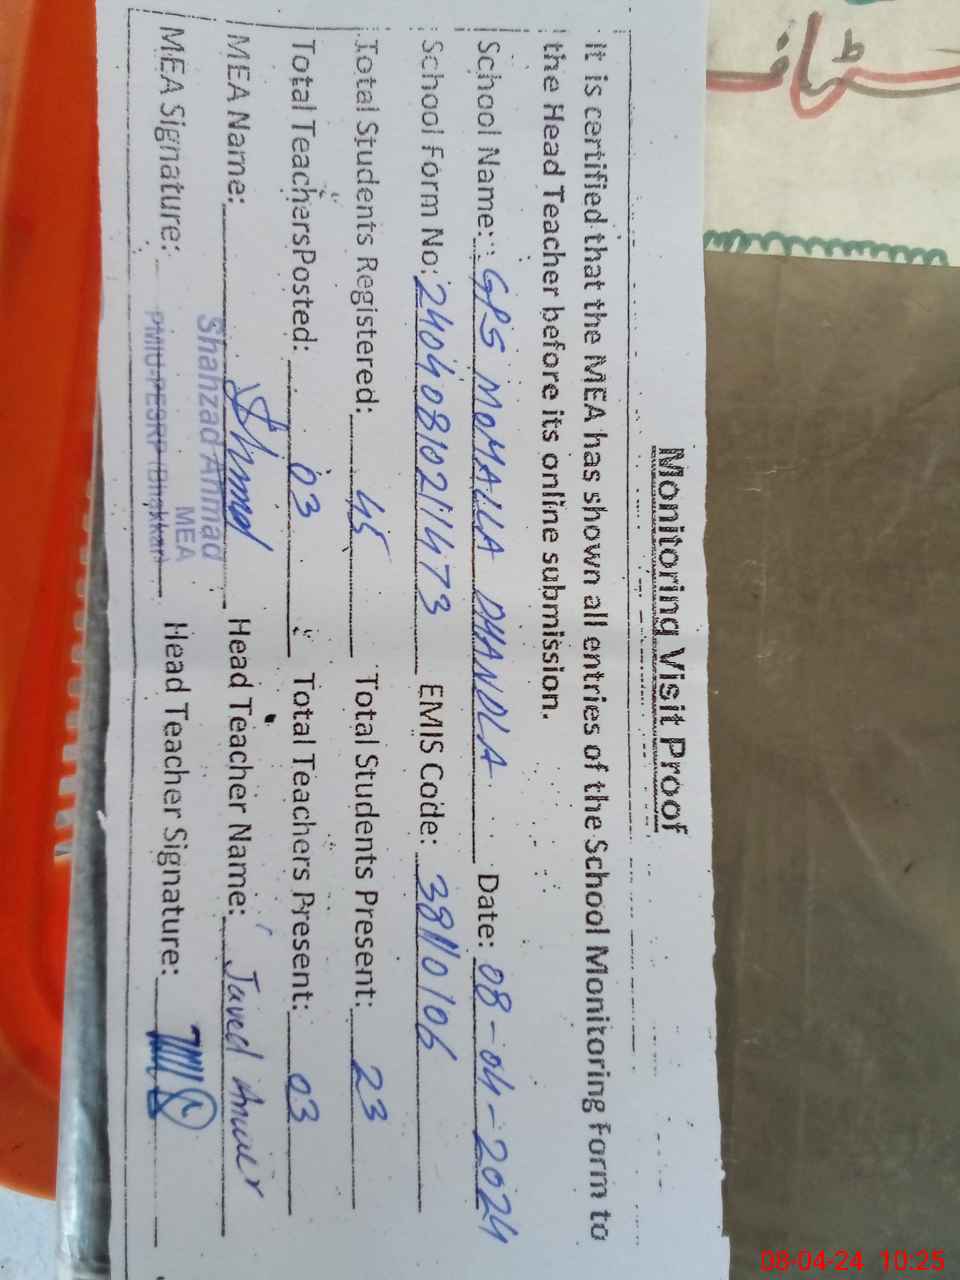 Monitoring Visit Proof
It is certified that the MEA has shown all entries of the School Monitoring Form to
the Head Teacher before its online submission.
School Name: GPS MOHALLA DHANDLA Date: 08-04-2024
School Form No: 24040810211473 EMIS Code: 38110106
Total Students Registered: 45 Total Students Present: 23
Total Teachers Posted: 03 Total Teachers Present: 03
MEA Name: Head Teacher Name: Javed Anwer
Shahzad Ahmad
MEA
MEA Signature: Head Teacher Signature:
PMIU-PESRP (Bhakkar)
سٹاف
08-04-24 10:25